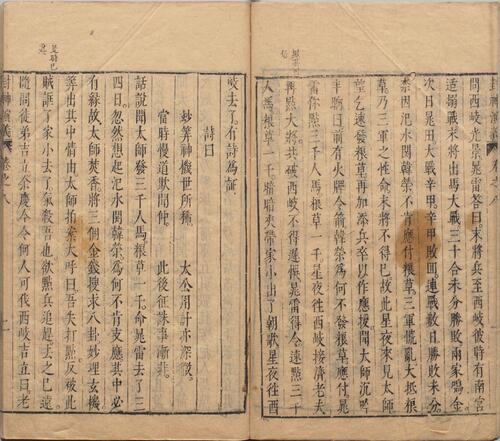 問西岐光景晁雷答曰末將兵至西岐彼時有南宮
适搦戰末將出馬大戰三十合未分勝敗兩家鳴金
次日晁田大戰辛甲辛甲敗回連戰數日勝敗未分
柰因汜水關韓榮不肯應付粮草三軍慌亂大抵粮
草乃三軍之性命末將不得已故此星夜來見太師
望乞速發粮草再加添兵卒以作應援聞太師沉吟
半晌曰前有火牌令箭韓榮為何不發粮草應付晁
雷你點三千人馬粮草一千星夜往西岐接濟老夫
再點大將共破西岐不得遲悞晁雷得令速點三千
人馬粮草一千暗暗夾帶家小出了朝歌星夜往西
岐去了有詩為証
詩曰
妙筭神機世所稀 太公用計亦深微
當時慢道欺聞仲 此後征誅事漸非
話說聞太師發三千人馬粮草一千命晁雷去了三
四日忽然想起汜水關韓榮為何不肯支應其中必
有緣故太師焚香將三個金錢搜求八卦妙理玄機
筭出其中情由太師拍案大呼曰吾失打點反被此
賊誆了家小去了氣殺吾也欲點兵追趕去之已遠
隨問徒弟吉立余慶今令何人可伐西岐吉立曰老
封神演義 卷之八